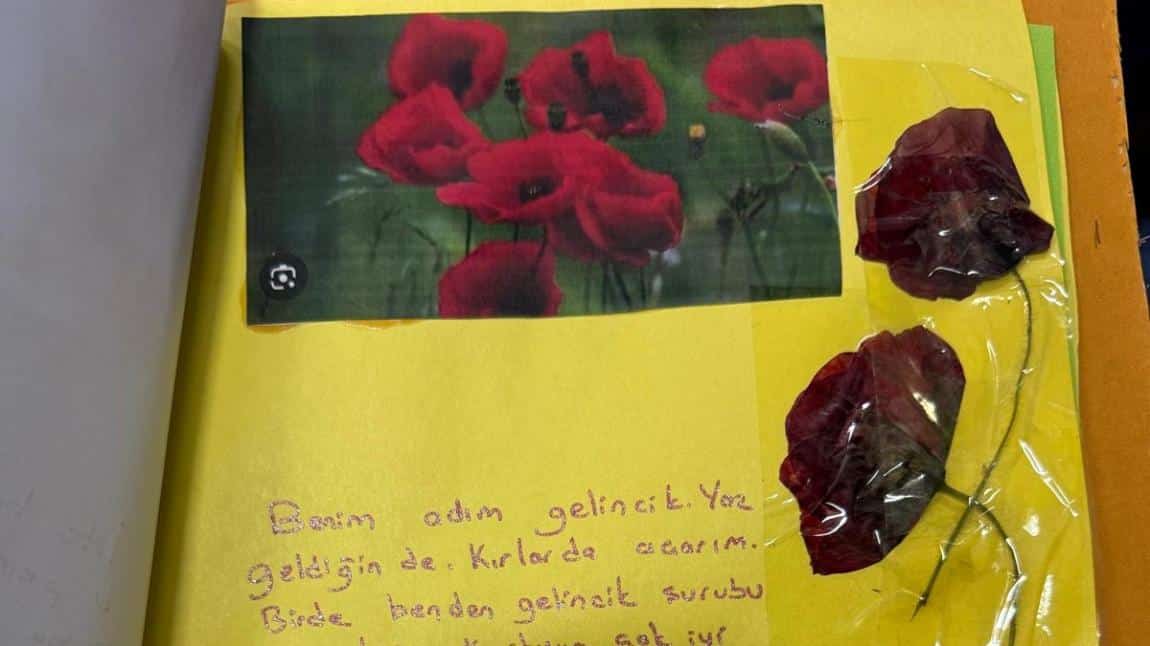 Benim adım gelincik. Yaz
geldiğin de. Kırlarda acarım.
Birde benden gelincik surubu
çok iyi